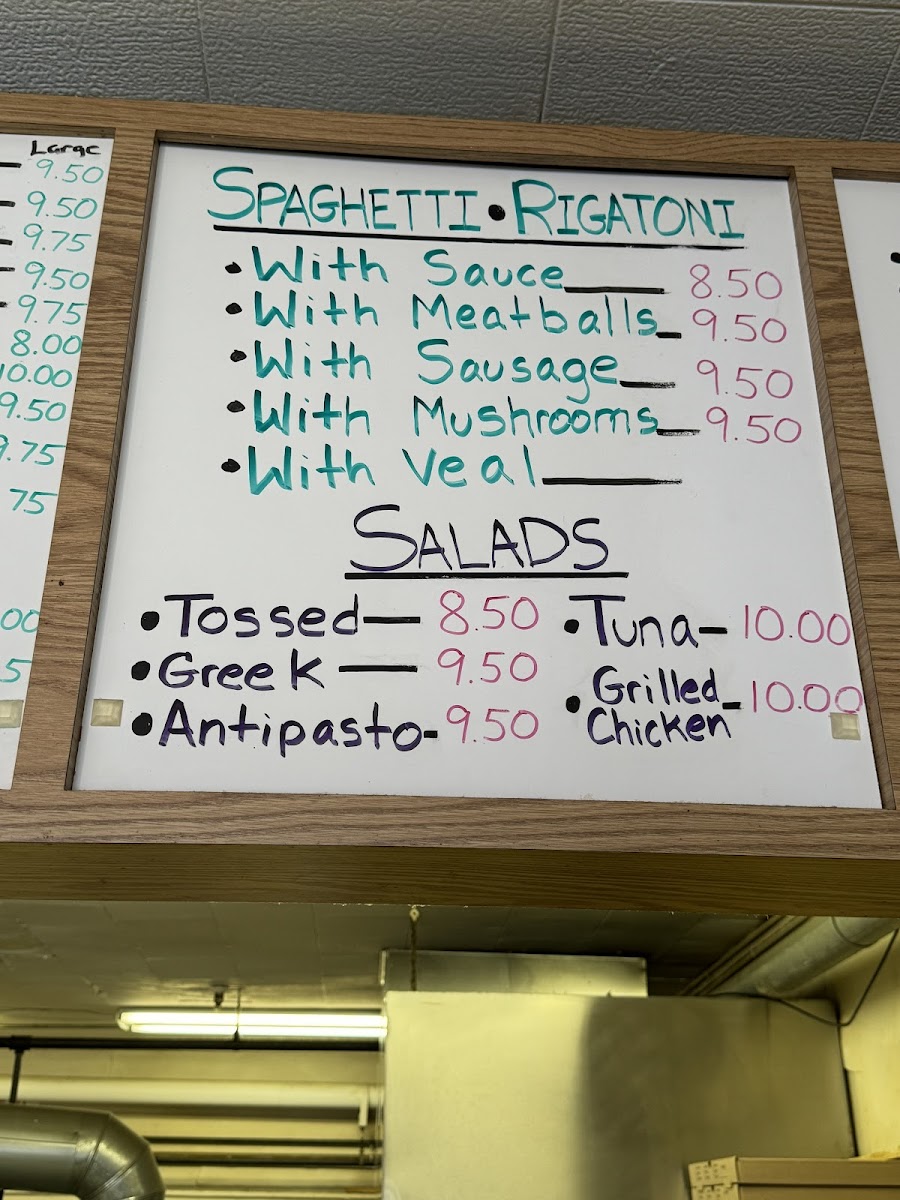 Large
9.50
9.50
9.75
9.50
9.75
8.00
10.00
9.50
9.75
75
00
5
SPAGHETTI • RIGATONI
• With Sauce 8.50
• With Meatballs 9.50
• With Sausage 9.50
• With Mushrooms 9.50
• With Veal
SALADS
• Tossed — 8.50
• Greek — 9.50
• Antipasto - 9.50
• Tuna - 10.00
• Grilled Chicken - 10.00